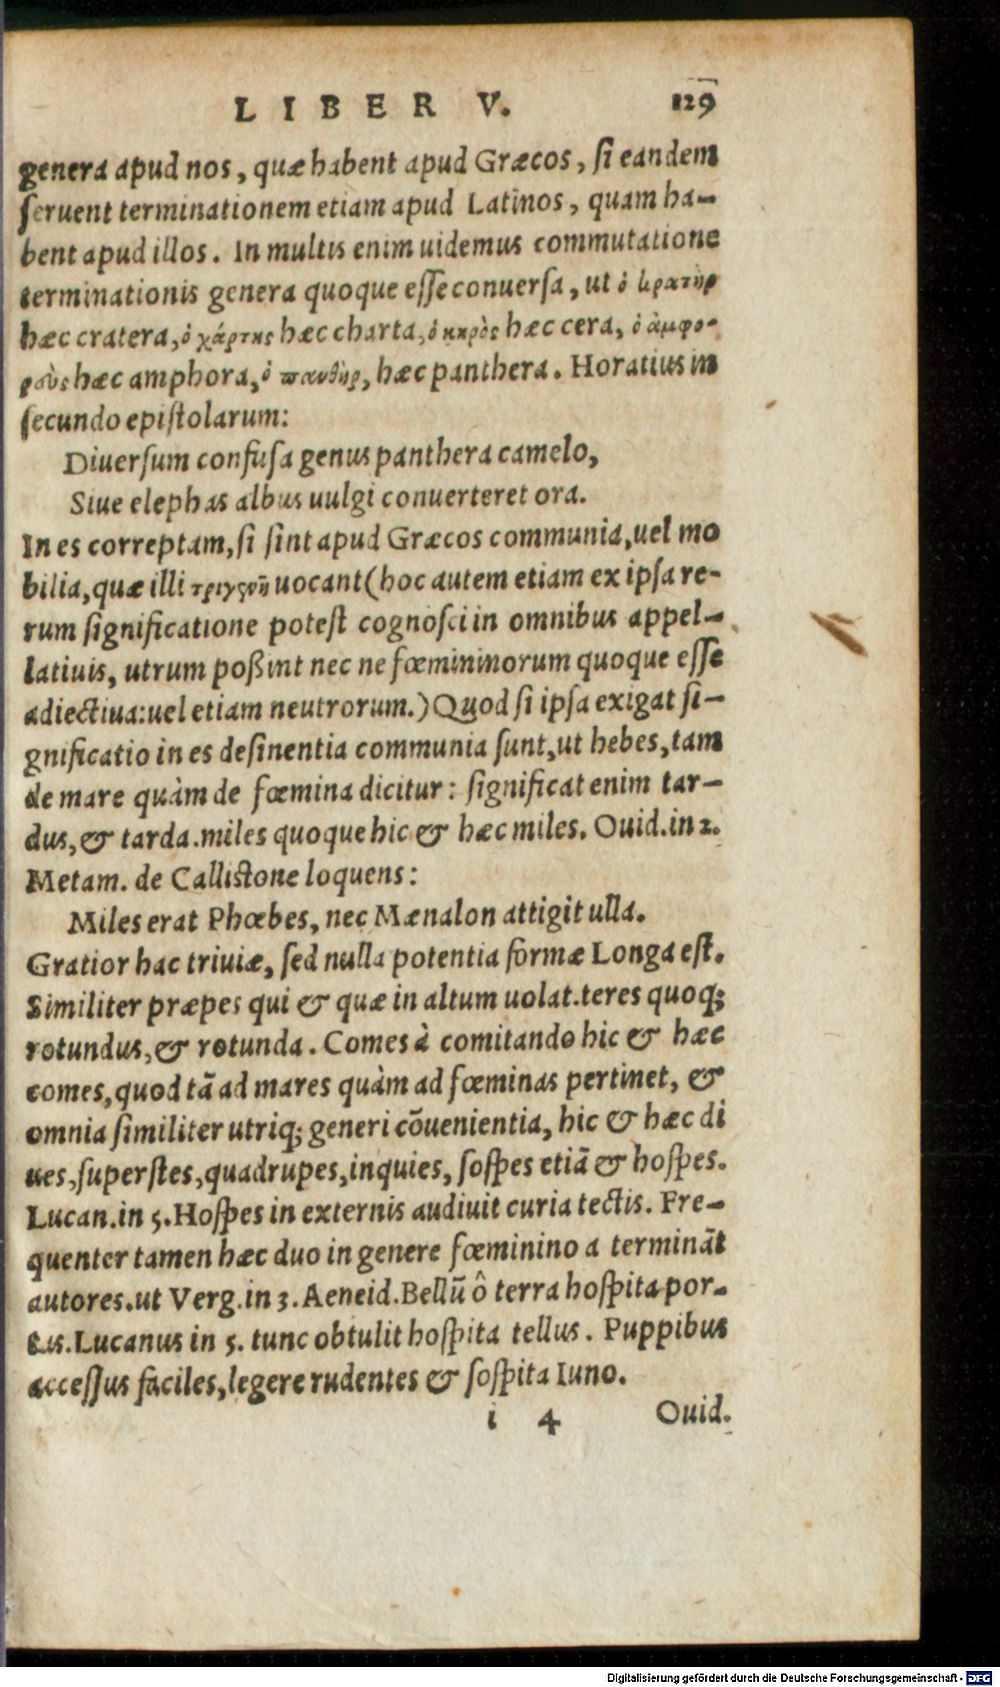 LIBER V. 129
genera apud nos, quæ habent apud Græcos, ſi eandem
ſeruent terminationem etiam apud Latinos, quam ha-
bent apud illos. In multis enim uidemus commutatione
terminationis genera quoque eſſe conuerſa, ut ὁ κρατὴρ
hæc cratera, ὁ χάρτης hæc charta, ὁ κηρὸς hæc cera, ὁ ἀμφο-
ροὺς hæc amphora, ὁ πανθὴρ, hæc panthera. Horatius in
ſecundo epiſtolarum:
Diuerſum confuſa genus panthera camelo,
Siue elephas albus uulgi conuerteret ora.
In es correptam, ſi ſint apud Græcos communia, uel mo
bilia, quæ illi uocant (hoc autem etiam ex ipſa re-
rum ſignificatione poteſt cognoſci in omnibus appel-
latiuis, utrum poßint nec ne fœmininorum quoque eſſe
adiectiua: uel etiam neutrorum.) Quod ſi ipſa exigat ſi-
gnificatio in es deſinentia communia ſunt, ut hebes, tam
de mare quàm de fœmina dicitur: ſignificat enim tar-
dus, & tarda. miles quoque hic & hæc miles. Ouid. in 2.
Metam. de Calliſtone loquens:
Miles erat Phœbes, nec Mænalon attigit ulla.
Gratior hac triuiæ, ſed nulla potentia formæ Longa eſt.
Similiter præpes qui & quæ in altum uolat. teres quoq;
rotundus, & rotunda. Comes à comitando hic & hæc
comes, quod tã ad mares quàm ad fœminas pertinet, &
omnia ſimiliter utriq; generi cõuenientia, hic & hæc di
ues, ſuperſtes, quadrupes, inquies, ſoſpes etiã & hoſpes.
Lucan. in 5. Hoſpes in externis audiuit curia tectis. Fre-
quenter tamen hæc duo in genere fœminino a terminãt
autores. ut Verg. in 3. Aeneid. Bellũ ô terra hoſpita por-
tis. Lucanus in 5. tunc obtulit hoſpita tellus. Puppibus
acceſſus faciles, legere rudentes & ſoſpita Iuno.
i 4 Ouid.
Digitalisierung gefördert durch die Deutsche Forschungsgemeinschaft - DFG